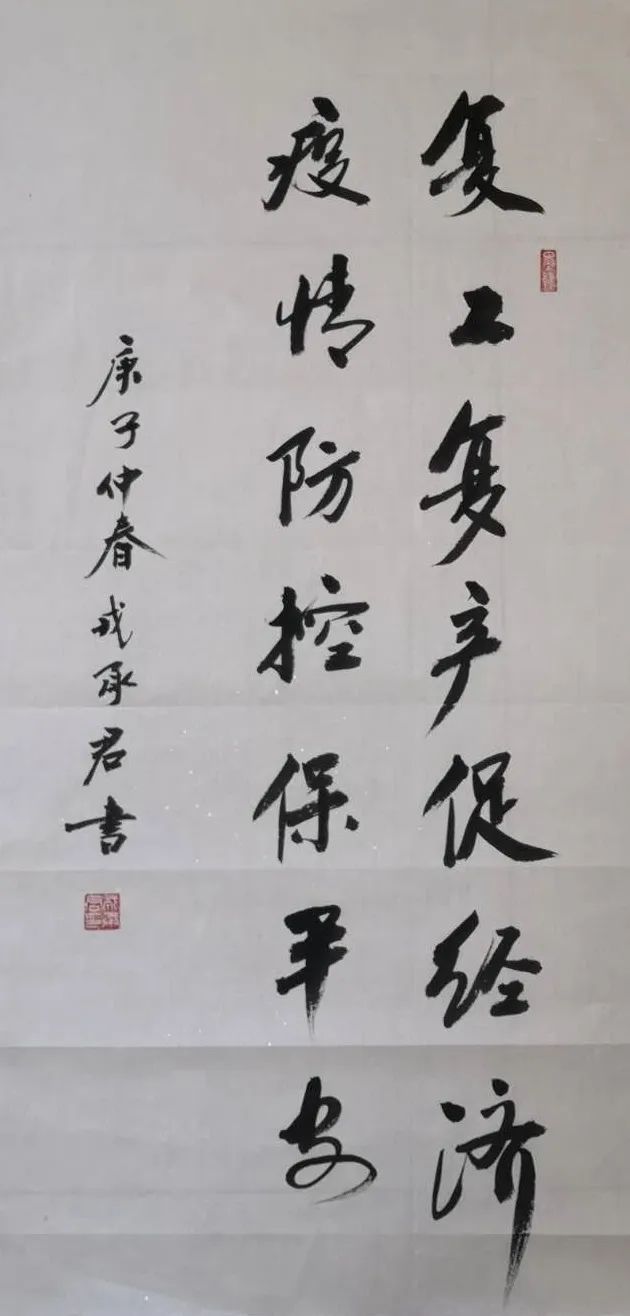 复工复产促经济
疫情防控保平安
庚子仲春戎承君书